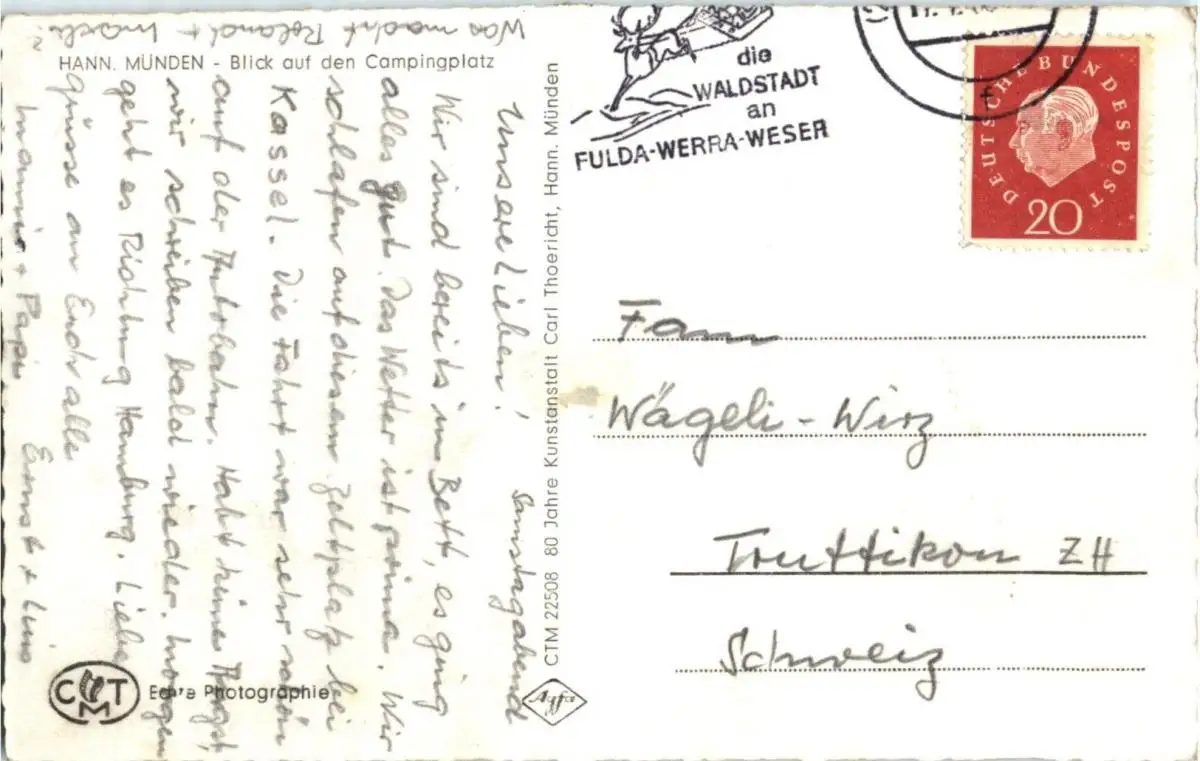 HANN. MÜNDEN - Blick auf den Campingplatz
Samstagabend
Unsere Lieben!
Wir sind bereits im Bett, es ging
alles gut. Das Wetter ist prima. Wir
schlafen auf diesem Zeltplatz bei
Kassel. Die Fahrt war sehr schön
auf der Autobahn. Habt keine Angst,
wir schreiben bald wieder. Morgen
geht es Richtung Hamburg. Liebe
Grüsse an Euch alle
Ernst + Luis
Was macht Roland +
CTM 22508 80 Jahre Kunstanstalt Carl Thoericht, Hann. Münden
Agfa
CTM
Echte Photographie
die
WALDSTADT
an
FULDA-WERRA-WESER
DEUTSCHE BUNDESPOST
20
Fam
Wägeli-Wirz
Truttikon ZH
Schweiz